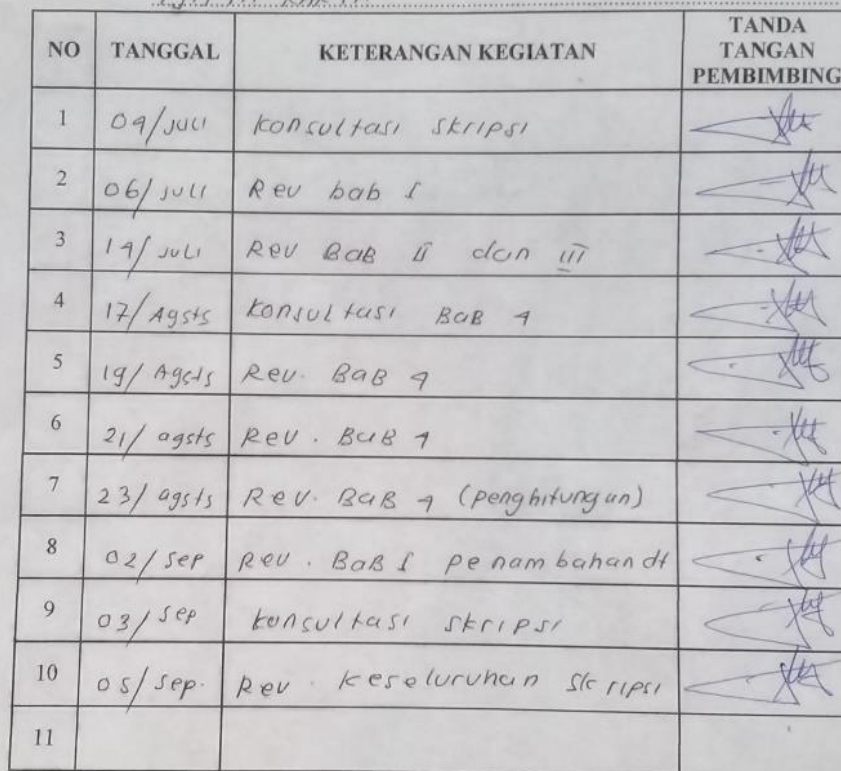 NO TANGGAL KETERANGAN KEGIATAN TANDA TANGAN PEMBIMBING
1 04/Juli Konsultasi Skripsi
2 06/Juli Rev bab I
3 14/Juli Rev BaB II dan III
4 17/Agsts Konsultasi BaB 4
5 19/Agsts Rev. BaB 4
6 21/agsts Rev. BaB 4
7 23/agsts Rev. BaB 4 (penghitungan)
8 02/Sep Rev. BaB I penambahan dt
9 03/Sep konsultasi skripsi
10 05/Sep. Rev. keseluruhan Skripsi
11